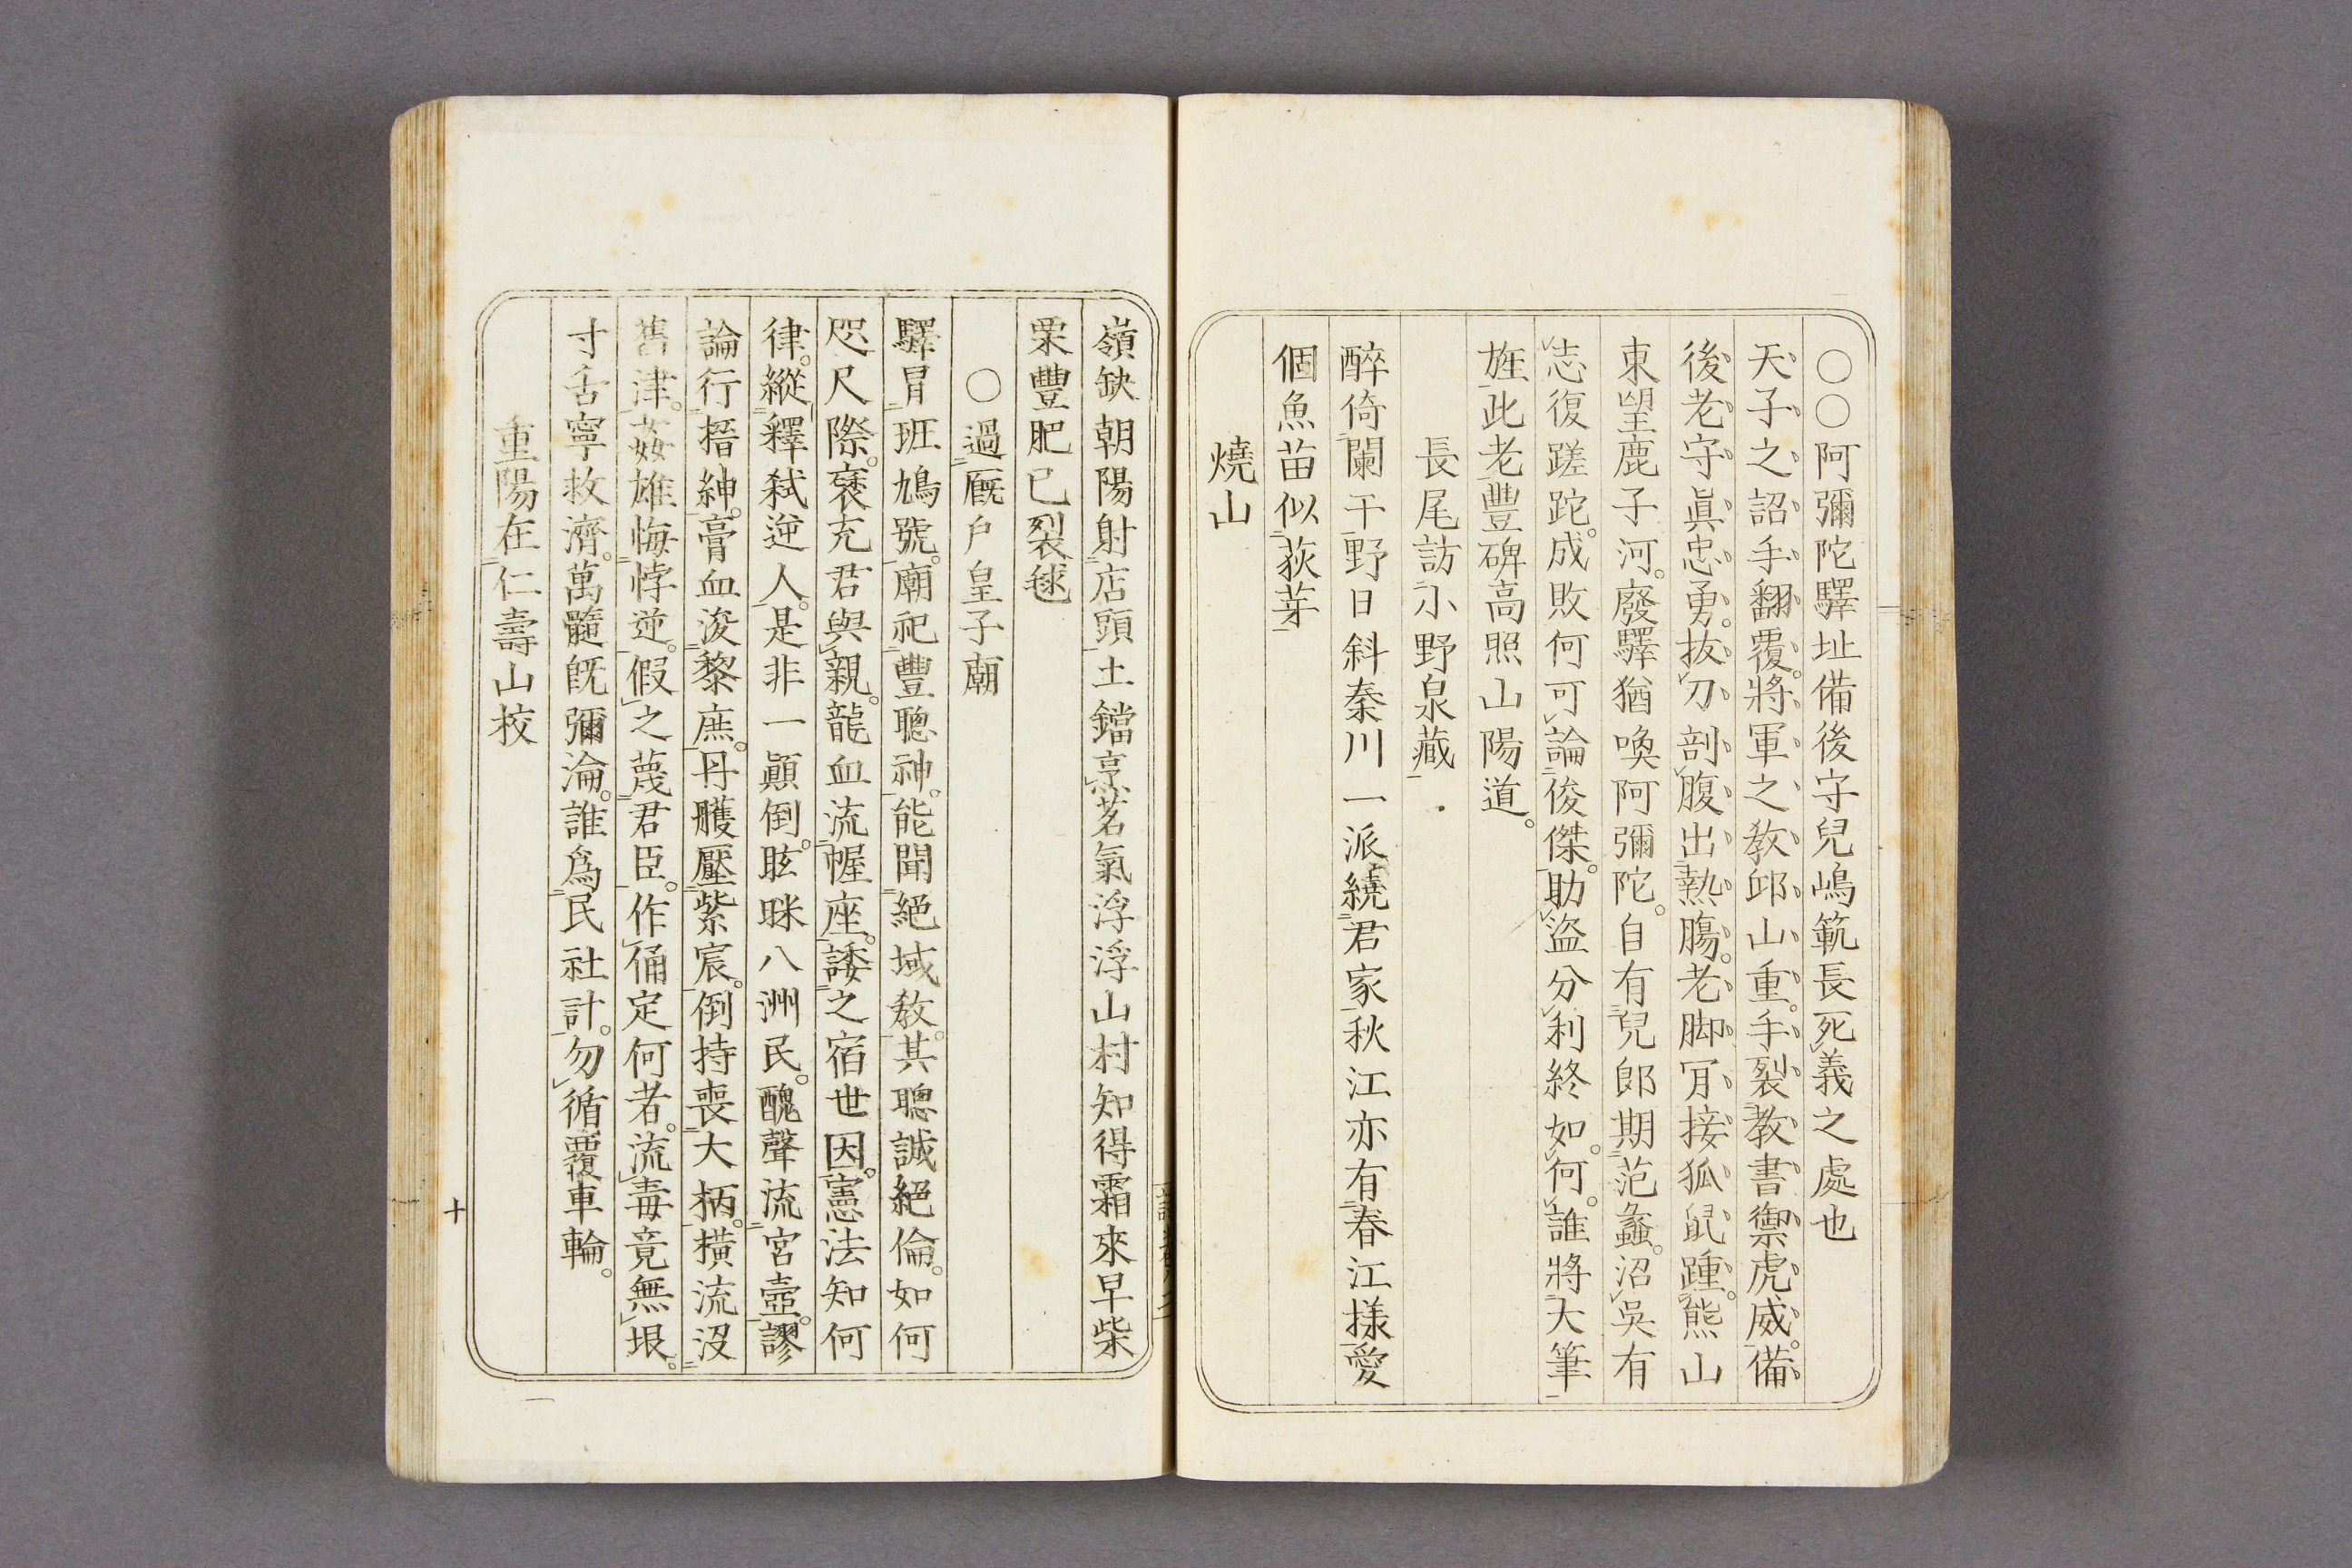 〇〇阿彌陀驛址備後守兒嶋範長死義之處也
天子之詔手翻覆。將軍之教邱山重。手裂教書禦虎威。備
後老守眞忠勇。抜刀剖腹出熱腸。老脚肎接狐鼠踵。熊山
東望鹿子河。廢驛猶喚阿彌陀。自有兒郎期范蠡。沼吳有
志復蹉跎。成敗何可論俊傑。助盜分利終如何。誰將大筆
旌此老豐碑高照山陽道。
長尾訪小野泉藏
醉倚闌干野日斜秦川一派繞君家秋江亦有春江樣愛
個魚苗似荻芽
燒山
嶺缺朝陽射店頭土鐺烹茗氣浮浮山村知得霜來早柴
栗豐肥已裂毬
〇過厩戶皇子廟
驛冒班鳩號。廟祀豐聰神。能聞絕域敎。其聰誠絕倫。如何
咫尺際。褎充君與親。龍血流幄座。諉之宿世因。憲法知何
律。縱釋弒逆人。是非一顚倒。眩眯八洲民。醜聲流宮壼。謬
論行搢紳。膏血浚黎庶。丹雘壓紫宸。倒持喪大柄。橫流沒
舊津。姦雄悔悖逆。假之蔑君臣。作俑定何者。流毒竟無垠。
寸舌寧救濟。萬髓旣彌淪。誰爲民社計。勿循覆車輪。
重陽在仁壽山校
十